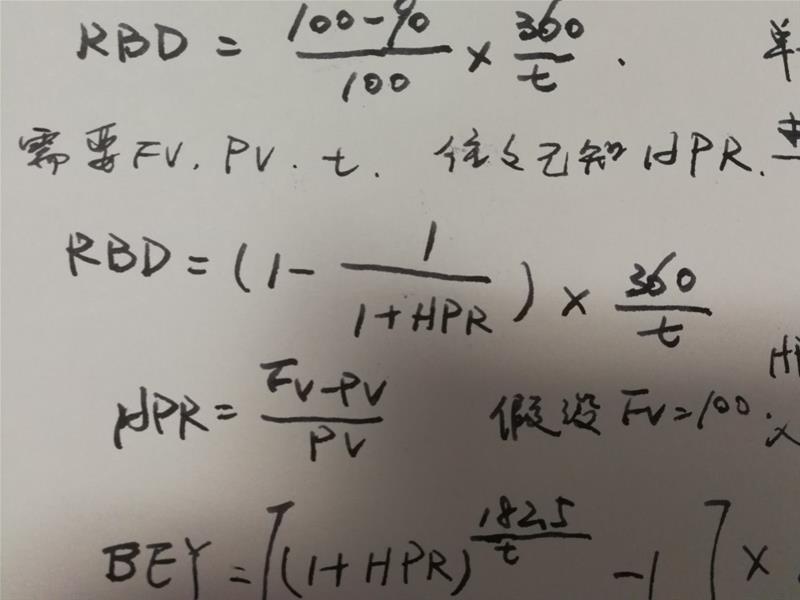 RBD = (100-90)/100 × 360/t . 单
需要FV. PV. t. 往々已知HPR.
RBD = (1 - 1/(1+HPR)) × 360/t
HPR = (FV-PV)/PV 假设 FV=100.
BEY = [(1+HPR)^(182.5/t) -1] ×